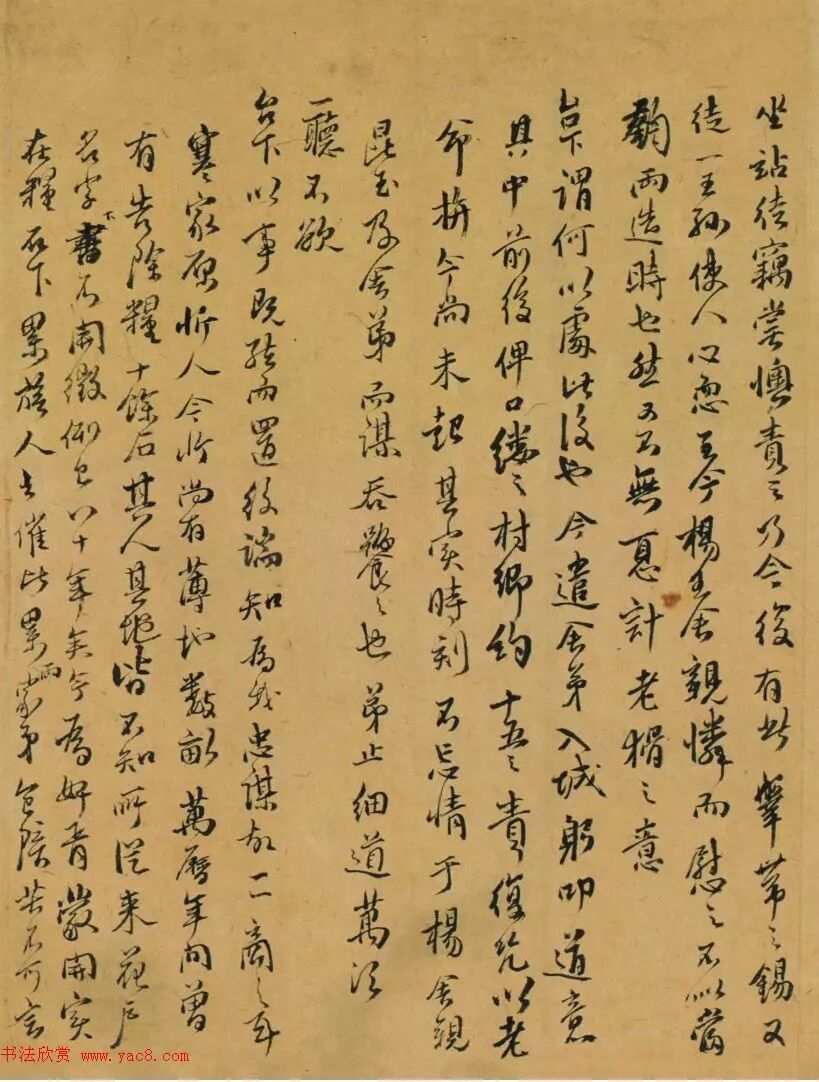 坐站待竊嘗懊責之乃今後有此舉帶之錫又
徒一王孫使人心忽至今楊老舍親憐而慰之不以當
鞫兩造時也然又不無憂計老猾之意
台下謂何以處此後也今遣舍弟入城躬叩道意
其中前後俾口縷之村鄉約十五之責復究以老
命捹今尚未起其实時刻不忘情于楊舍親
昆玉及舍弟而謀吞饗之也弟止細道萬次
一聽不欲
台下以事既張而置後端知為我忠謀故二商之耳
寒家原忻人今忻尚有薄地數畝萬曆年间曾
有告除糧十餘石其人其地皆不知所從来花户
名字下書不開徵例已八十年矣今為奸胥蒙開实
在糧石下累族人去催比累两家弟包賠苦不可言
书法欣赏 www.yac8.com